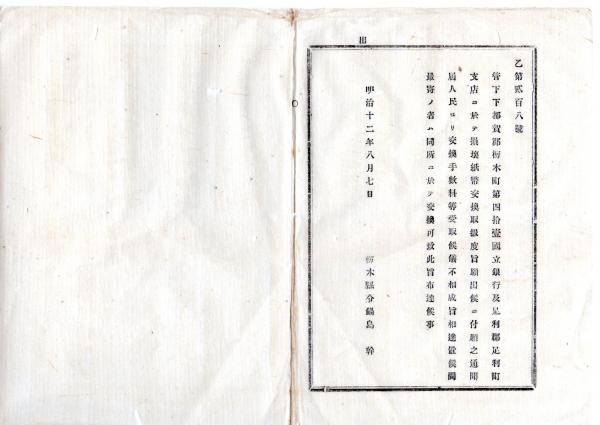 乙第貳百八號
管下下都賀郡栃木町第四拾壹國立銀行及足利郡足利町
支店ニ於テ損壊紙幣交換取扱度旨願出候ニ付願之通聞
届人民ヨリ交換手數料等受取候儀不相成旨相達置候間
最寄ノ者ハ同所ニ於テ交換可致此旨布達候事
明治十二年八月七日
栃木縣令鍋島 幹